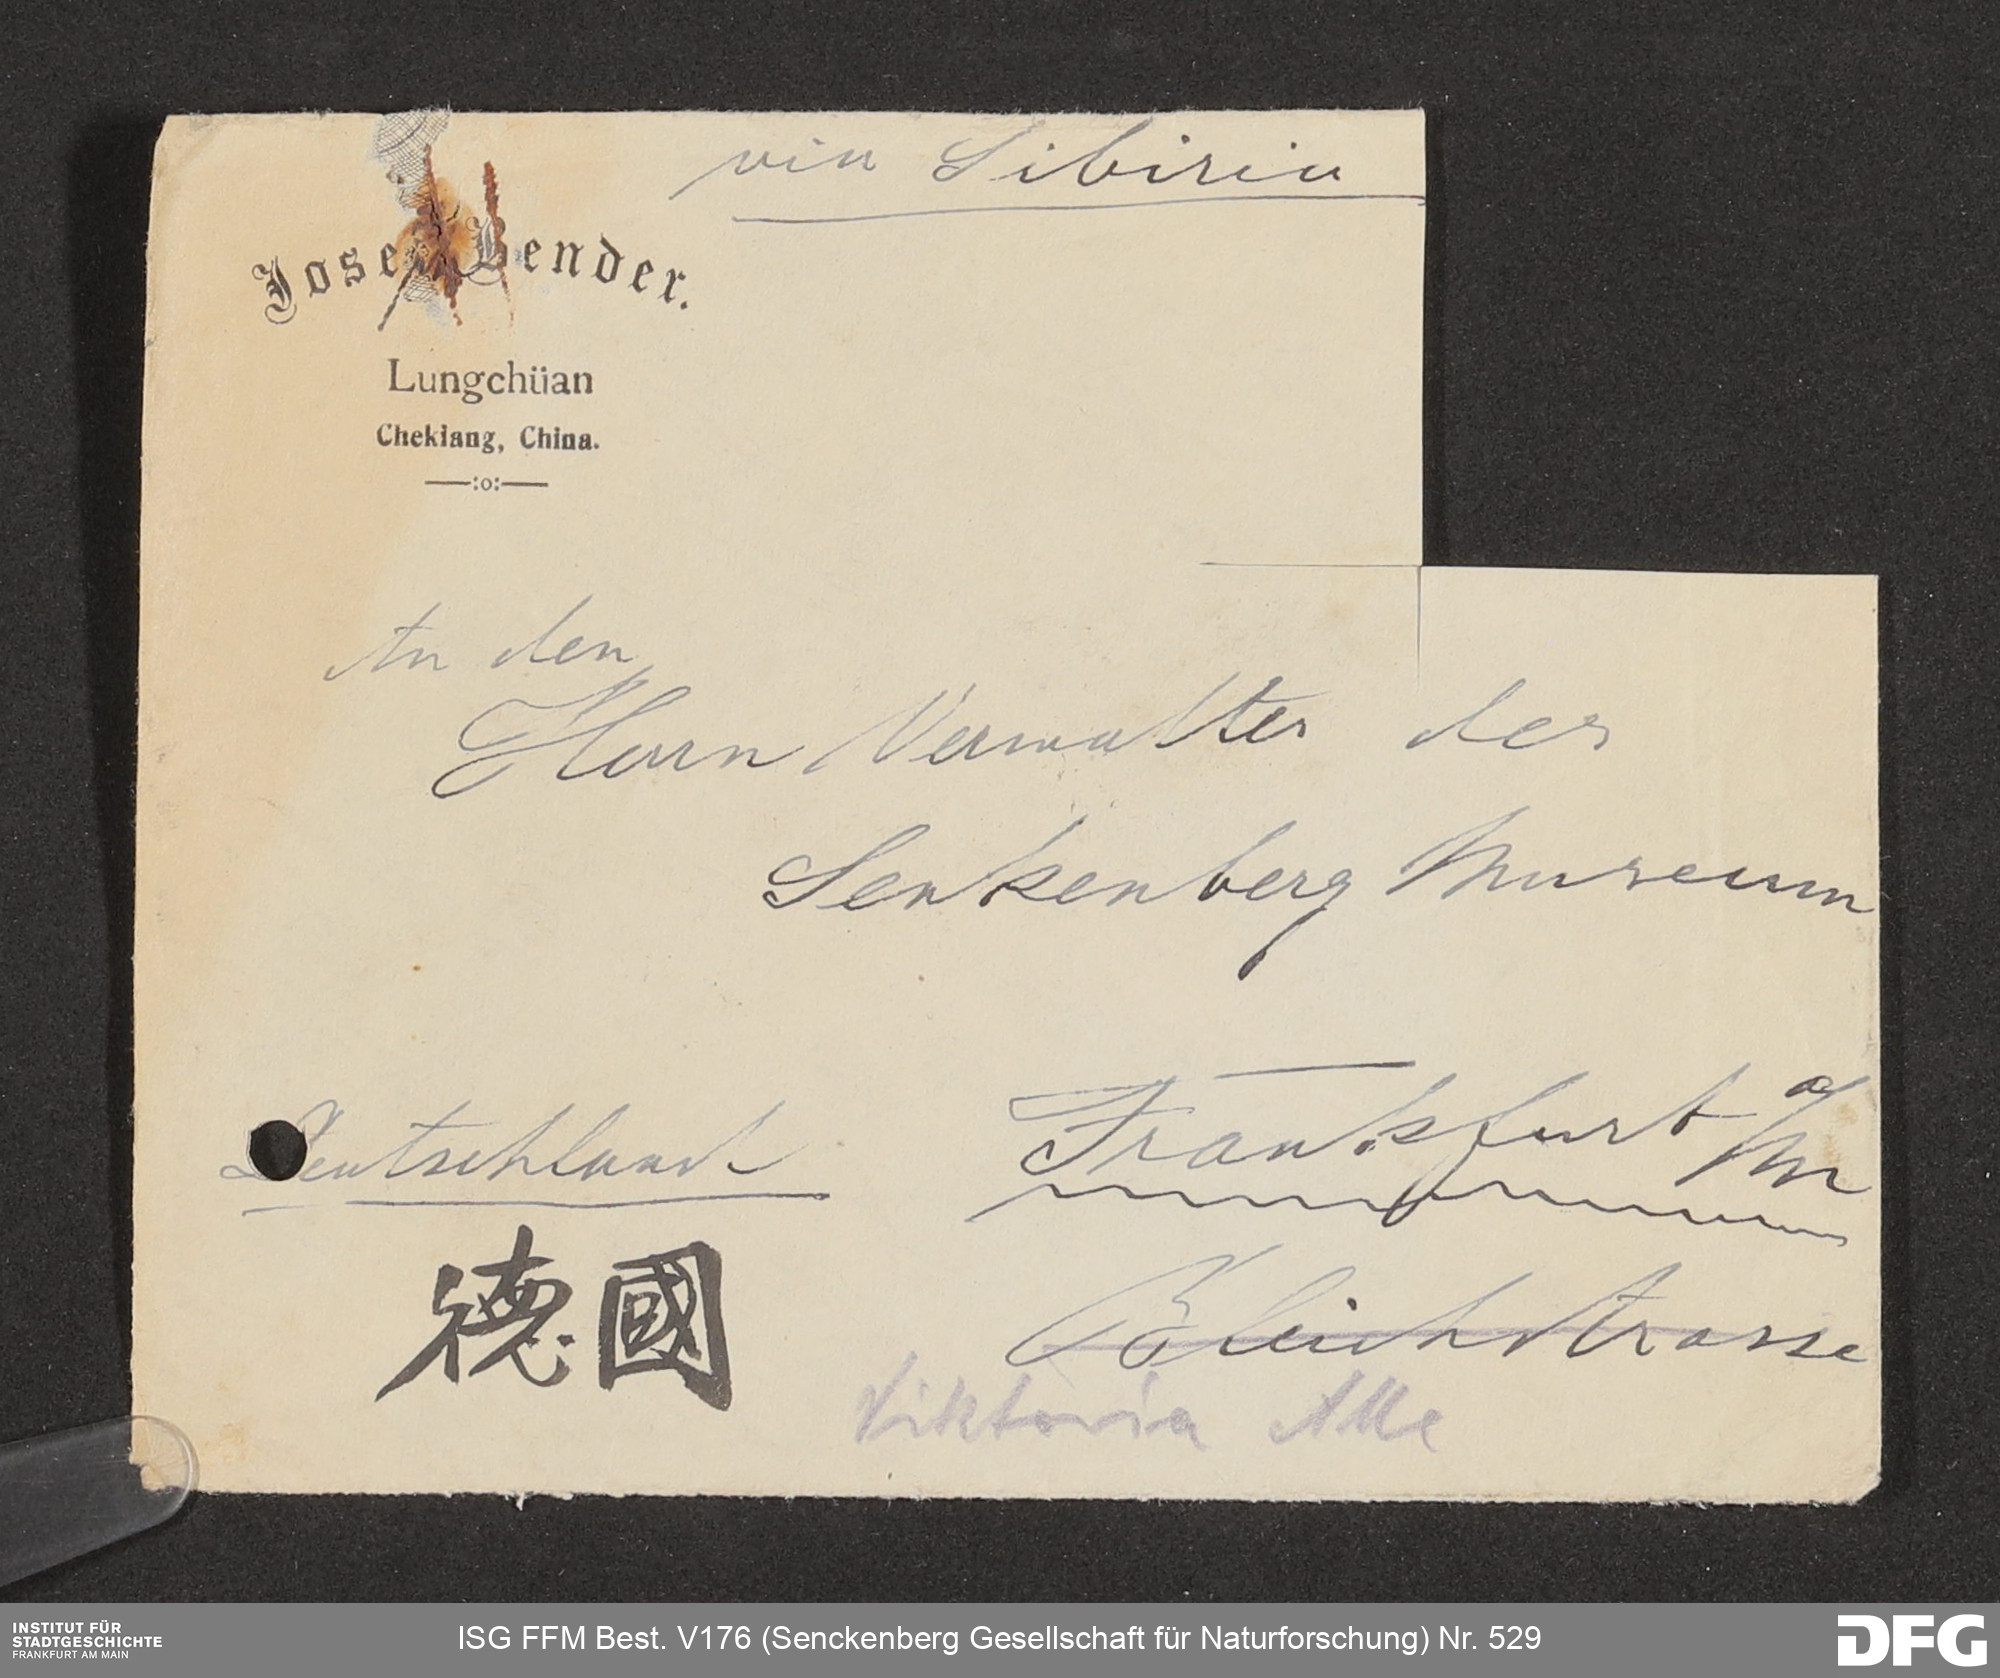 via Sibiria
Josef Bender.
Lungchüan
Chekiang, China.
—:o:—
An den
Herrn Verwalter des
Senkenberg Museum
Frankfurt a/M
Deutschland
德國
Bleichstrasse
Viktoria Alle
INSTITUT FÜR
STADTGESCHICHTE
FRANKFURT AM MAIN
ISG FFM Best. V176 (Senckenberg Gesellschaft für Naturforschung) Nr. 529
DFG